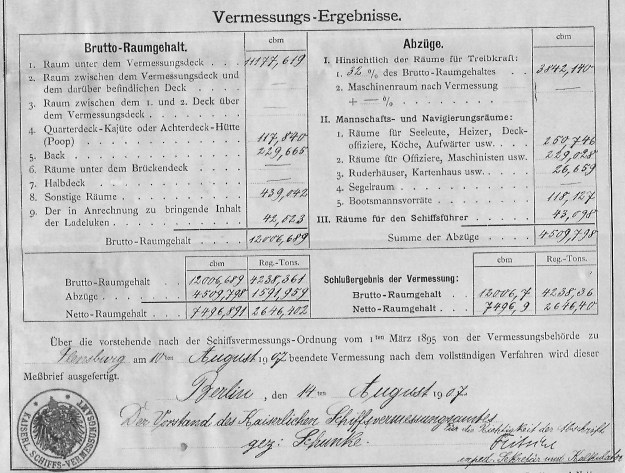 Vermessungs-Ergebnisse.
Brutto-Raumgehalt. cbm
1. Raum unter dem Vermessungsdeck . . . 11177,619
2. Raum zwischen dem Vermessungsdeck und
dem darüber befindlichen Deck . . . . —
3. Raum zwischen dem 1. und 2. Deck über
dem Vermessungsdeck . . . . . . —
4. Quarterdeck-Kajüte oder Achterdeck-Hütte
(Poop) . . . . . . . . . 117,840
5. Back . . . . . . . . . 229,665
6. Räume unter dem Brückendeck . . . . —
7. Halbdeck . . . . . . . . —
8. Sonstige Räume . . . . . . . 439,042
9. Der in Anrechnung zu bringende Inhalt
der Ladeluken . . . . . . . 42,523
Brutto-Raumgehalt . . 12006,689
Abzüge. cbm
I. Hinsichtlich der Räume für Treibkraft:
1. 32 % des Brutto-Raumgehaltes . . 3842,140
2. Maschinenraum nach Vermessung
+ — % . . . . . . . —
II. Mannschafts- und Navigierungsräume:
1. Räume für Seeleute, Heizer, Deck-
offiziere, Köche, Aufwärter usw. . . 250,746
2. Räume für Offiziere, Maschinisten usw. 229,028
3. Ruderhäuser, Kartenhaus usw. . . 26,659
4. Segelraum . . . . . . . —
5. Bootsmannsvorräte . . . . . 118,127
III. Räume für den Schiffsführer . . . . 43,098
Summe der Abzüge . . . 4509,798
cbm Reg.-Tons.
Brutto-Raumgehalt . . 12006,689 4238,361
Abzüge . . . . . 4509,798 1591,959
Netto-Raumgehalt . . 7496,891 2646,402
cbm Reg.-Tons.
Schlußergebnis der Vermessung:
Brutto-Raumgehalt . . . 12006,7 4238,36
Netto-Raumgehalt . . . 7496,9 2646,40
Über die vorstehende nach der Schiffsvermessungs-Ordnung vom 1ten März 1895 von der Vermessungsbehörde zu
Flensburg am 10ten August 1907 beendete Vermessung nach dem vollständigen Verfahren wird dieser
Meßbrief ausgefertigt.
Berlin, den 14ten August 1907.
Der Vorstand des Kaiserlichen Schiffsvermessungsamtes
gez: Schunke.
Für die Richtigkeit der Abschrift
exped. Sekretär und Kalkulator
KAISERL. SCHIFFS-VERMESSUNGSAMT